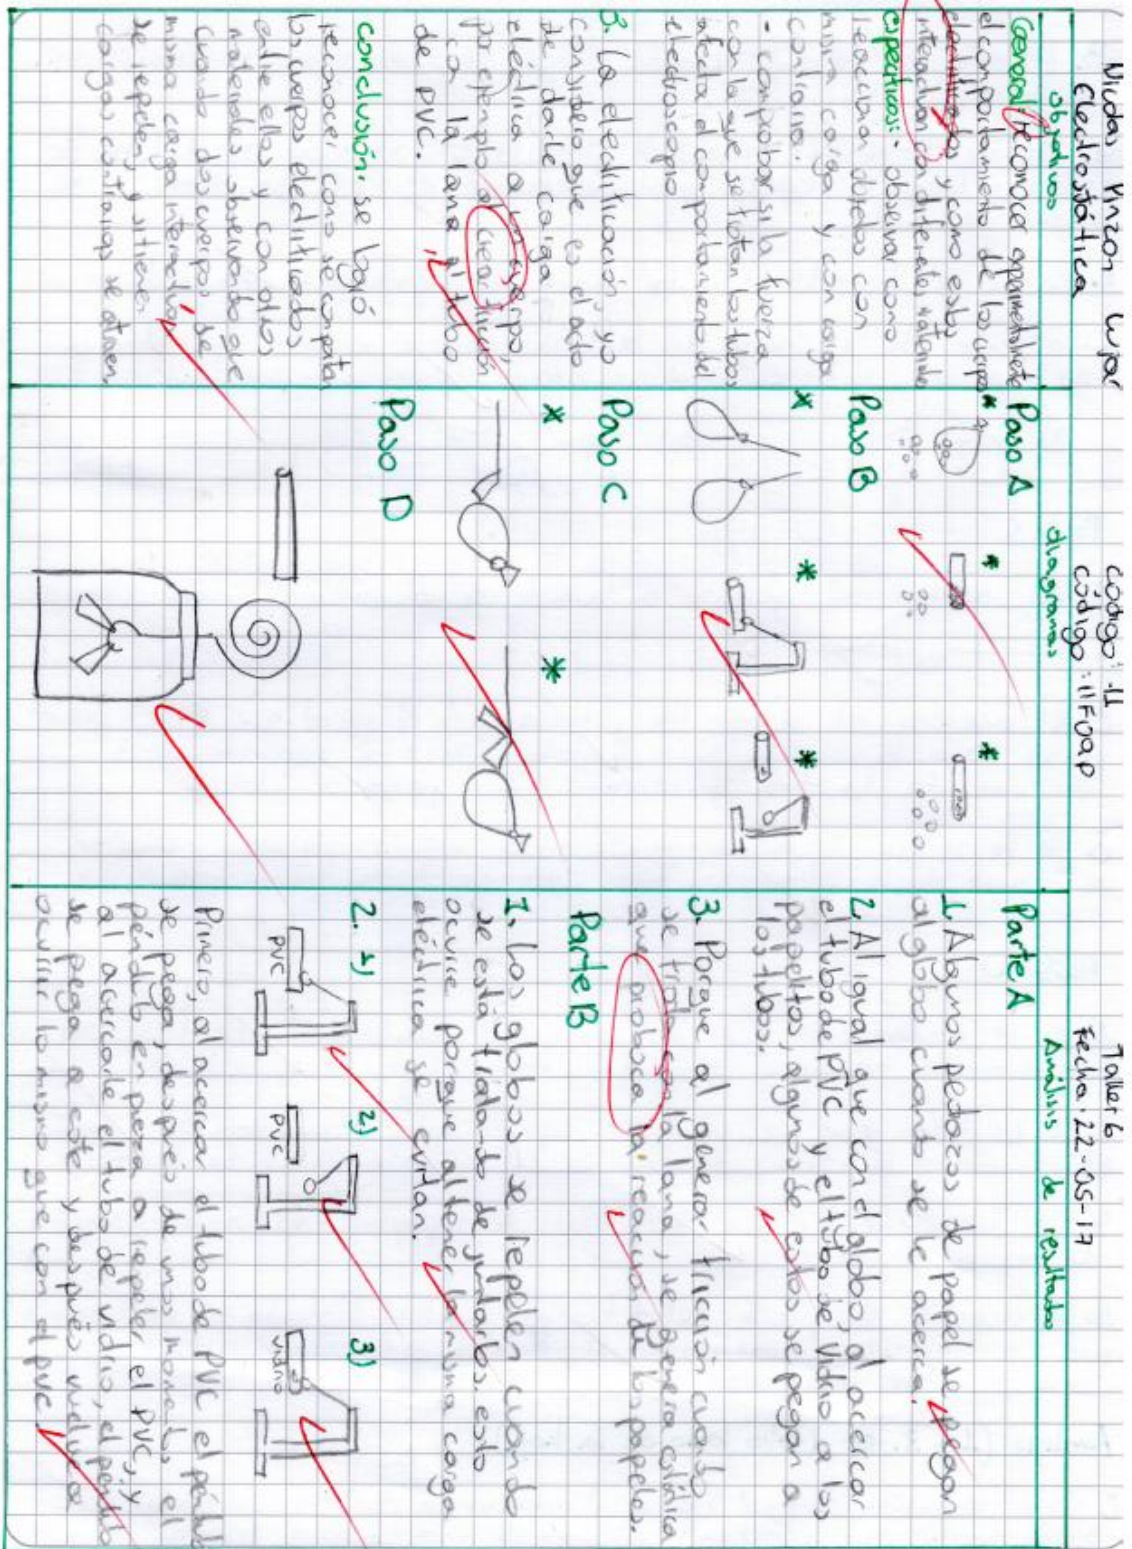 Nicolas Pinzon Wjar
código: 11
Taller 6
Electrostática
código: 11F0ap
Fecha: 22-05-17
objetivos
General: reconocer experimentalmente
el comportamiento de los cuerpos
electrificados y como estos
interactuan con diferentes materiales
especificos: - observar como
reaccionan objetos con
misma carga y con carga
contraria.
- comprobar si la fuerza
con la que se frotan los tubos
afecta el comportamiento del
electroscopio
3. La electrificación, yo
considero que es el acto
de darle carga
eléctrica a un cuerpo,
por ejemplo al crear fricción
con la lana al tubo
de PVC.
conclusión: se logró
reconocer como se comportan
los cuerpos electrificados
entre ellos y con otros
materiales observando que
cuando dos cuerpos de
misma carga interactúan
se repelen, y si tienen
cargas contrarias se atraen.
diagramas
Paso A
* * *
Paso B
* * *
Paso C
* *
Paso D
Análisis de resultados
Parte A
1. Algunos pedazos de papel se pegan
al globo cuando se le acerca.
2. Al igual que con el globo, al acercar
el tubo de PVC y el tubo de Vidrio a los
papelitos, algunos de estos se pegan a
los tubos.
3. Porque al generar fricción cuando
se frota con la lana, se genera estática
que proboca la reacción de los papeles.
Parte B
1. Los globos se repelen cuando
se está tratando de juntarlos. esto
ocurre porque al tener la misma carga
eléctrica se evitan.
2. 1) 2) 3)
PVC PVC vidrio
Primero, al acercar el tubo de PVC el péndulo
se pega, después de unos momentos el
péndulo empieza a repeler el PVC, y
al acercarle el tubo de vidrio, el péndulo
se pega a este y después vuelve a
ocurrir lo mismo que con el pvc.